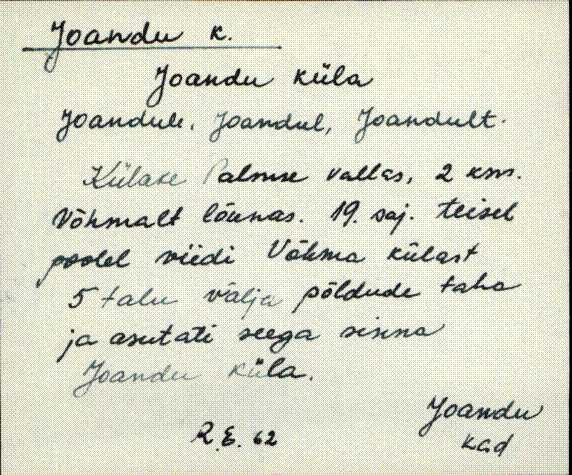 Joandu k.
Joandu küla
Joandule, Joandul, Joandult.
Külake Palmse vallas, 2 km.
Võhmalt lõunas. 19. saj. teisel
poolel viidi Võhma külast
5 talu välja põldude taha
ja asutati seega sinna
Joandu küla.
R.E. 62
Joandu
kad